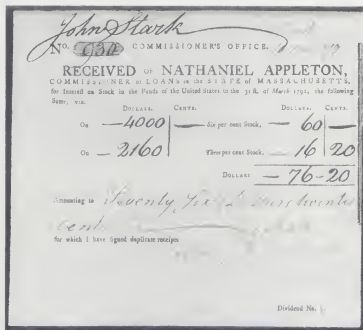 John Stark
No. 930 COMMISSIONER'S OFFICE,
RECEIVED OF NATHANIEL APPLETON,
COMMISSIONER OF LOANS IN THE STATE OF MASSACHUSETTS,
for Interest on Stock in the Funds of the United States to the 31st. of March 1792, the following
Sums, viz.
DOLLARS. CENTS. DOLLARS. CENTS.
On —4000 — Six per cent Stock, — 60 —
On —2160 Three per cent Stock, — 16 20
DOLLARS — 76-20
Amounting to Seventy Six Dollars twenty
cents
for which I have signed duplicate receipts
Dividend No.